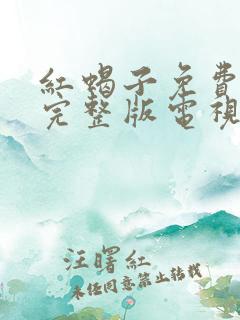 紅蝎子免費
完整版電視
汪曙紅
未经同意禁止转载